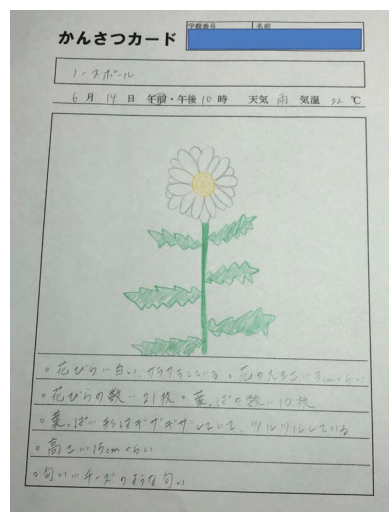 かんさつカード
学籍番号 名前
ノースポール
6月14日 午前・午後10時 天気 雨 気温 22 ℃
。花びらい白い、サラサラしている 。花の大きさい3cmくらい
。花びらの数い21枚 。葉っぱの数い10枚
。葉っぱい形はギザギザしていて、ツルツルしている
。高さい15cmくらい
。匂いいチーズのような匂い